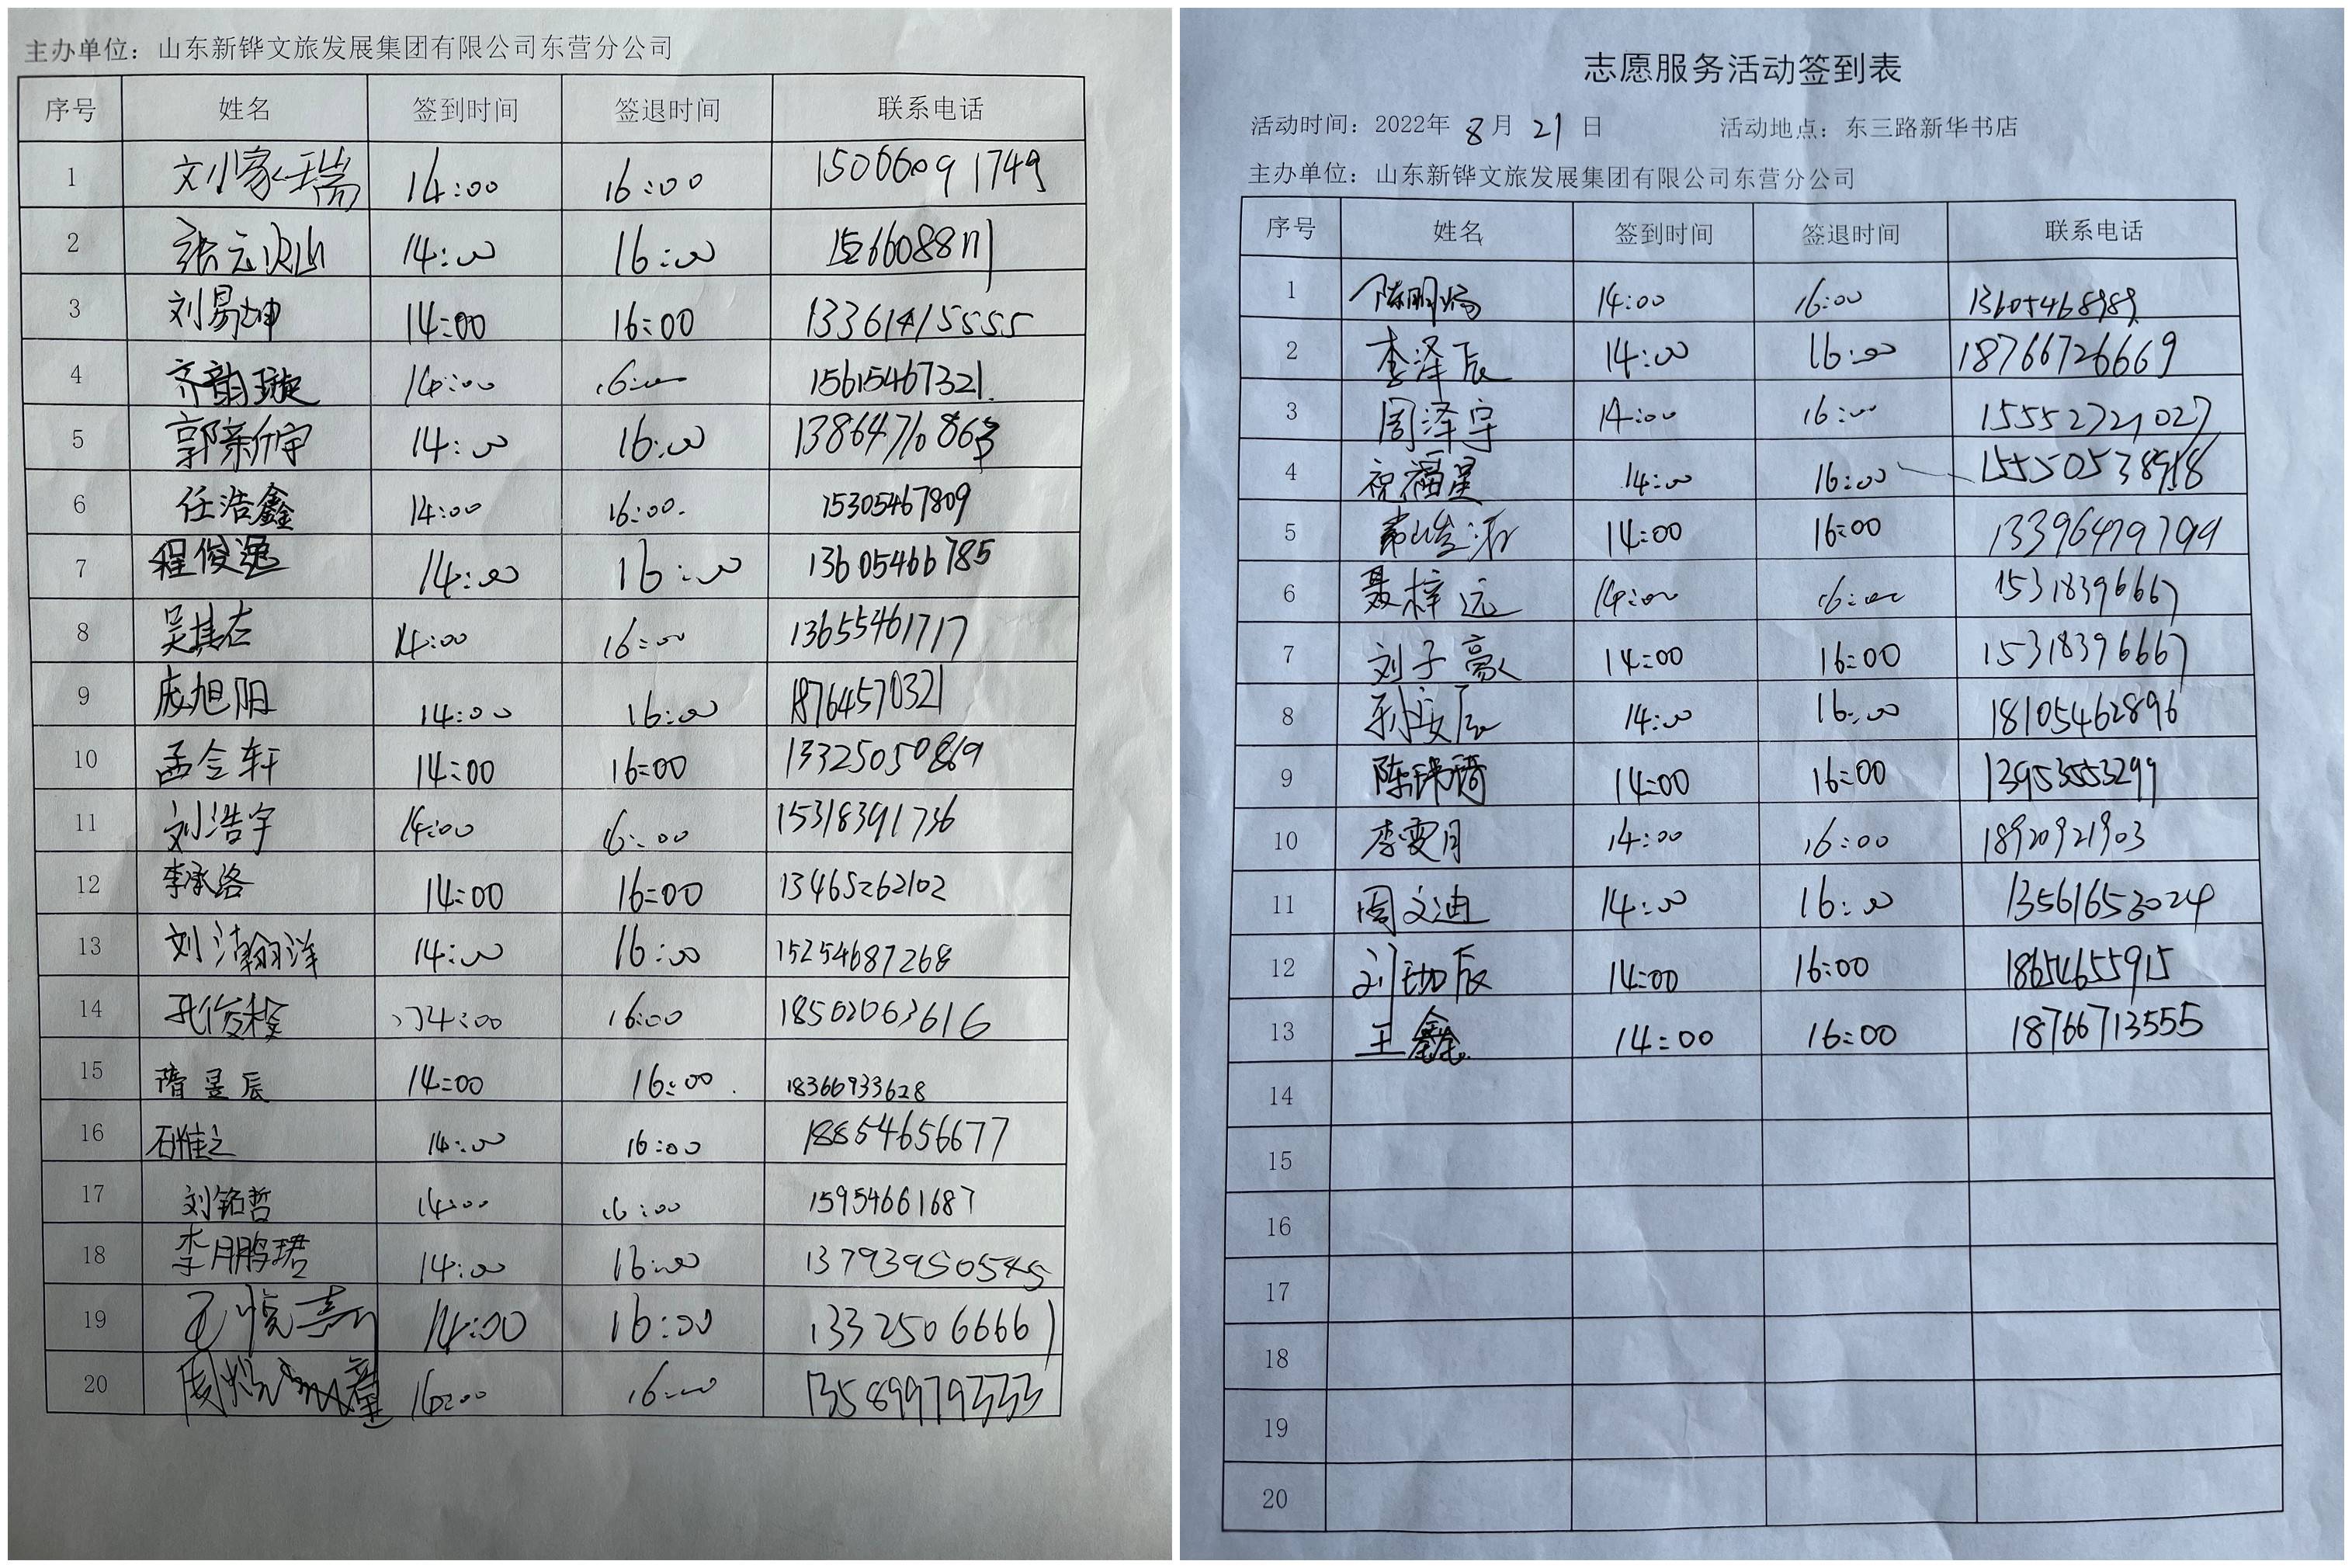 主办单位：山东新铧文旅发展集团有限公司东营分公司
序号 姓名 签到时间 签退时间 联系电话
1 刘家瑞 14:00 16:00 15066091749
2 张云泱山 14:00 16:00
3 刘易坤 14:00 16:00 13361415555
4 齐韵璇 14:00 16:00 15615467321
5 郭新宇 14:00 16:00
6 任浩鑫 14:00 16:00. 15305467809
7 程俊逸 14:00 16:00 13605466785
8 吴其右 14:00 16:00 13655461717
9 庞旭阳 14:00 16:00 18764570321
10 孟令轩 14:00 16:00
11 刘浩宇 14:00 16:00 15318391736
12 李承洛 14:00 16:00 13465262102
13 刘瀚洋 14:00 16:00 15254687268
14 孔俊 14:00 16:00 18502063616
15 隋昱辰 14:00 16:00 18366933628
16 石惟之 14:00 16:00 18854656677
17 刘铭哲 14:00 16:00 15954661687
18 李鹏珺 14:00 16:00 13793950545
19 14:00 16:00 13325066661
20 16:00 13589979333
志愿服务活动签到表
活动时间：2022年 8月 21 日 活动地点：东三路新华书店
主办单位：山东新铧文旅发展集团有限公司东营分公司
序号 姓名 签到时间 签退时间 联系电话
1 14:00 16:00 13605468989
2 李泽辰 14:00 16:00 18766726669
3 周泽宇 14:00 16:00 15552721027
4 祝福星 14:00 16:00
5 14:00 16:00 13396479799
6 聂梓远 14:00 16:00 15318396667
7 刘子豪 14:00 16:00 15318396667
8 孙安辰 14:00 16:00 18105462896
9 陈琦 14:00 16:00 13953553299
10 李雯月 14:00 16:00 18920921903
11 周文迪 14:00 16:00 13561653024
12 辰 14:00 16:00 18654655915
13 王鑫 14:00 16:00 18766713555
14
15
16
17
18
19
20